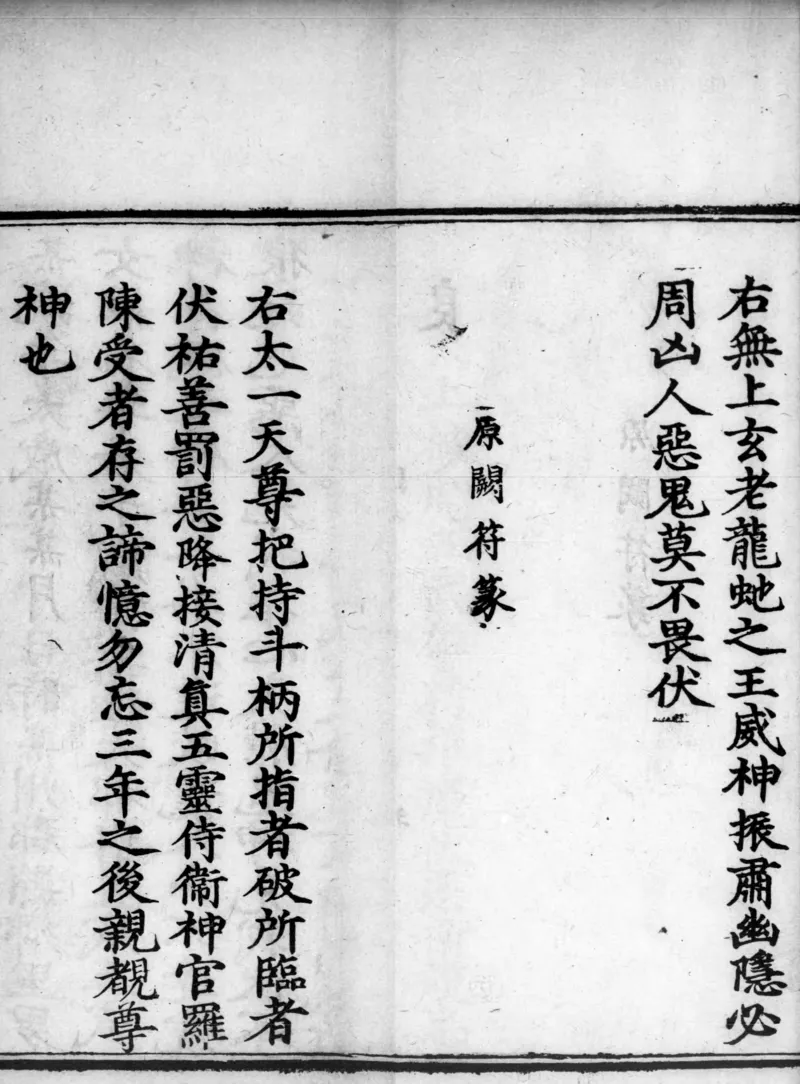 右無上玄老龍虵之王威神振肅幽隱必
周凶人惡鬼莫不畏伏
原闕符篆
右太一天尊把持斗柄所指者破所臨者
伏祐善罰惡降接清真五靈侍衛神官羅
陳受者存之諦憶勿忘三年之後親覩尊
神也